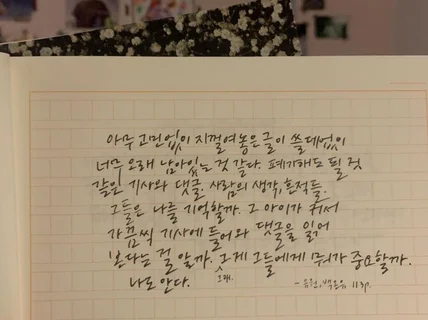 아무 고민없이 지껄여놓은 글이 쓸데없이
너무 오래 남아있는 것 같다. 폐기해도 될 것
같은 기사와 댓글. 사람의 생각, 흔적들.
그들은 나를 기억할까. 그 아이가 커서
가끔씩 기사에 들어와 댓글을 읽어
본다는 걸 알까. 그게 그들에게 뭐가 중요할까.
나도 안다. 그래.
- 유원, 백온유 113p.